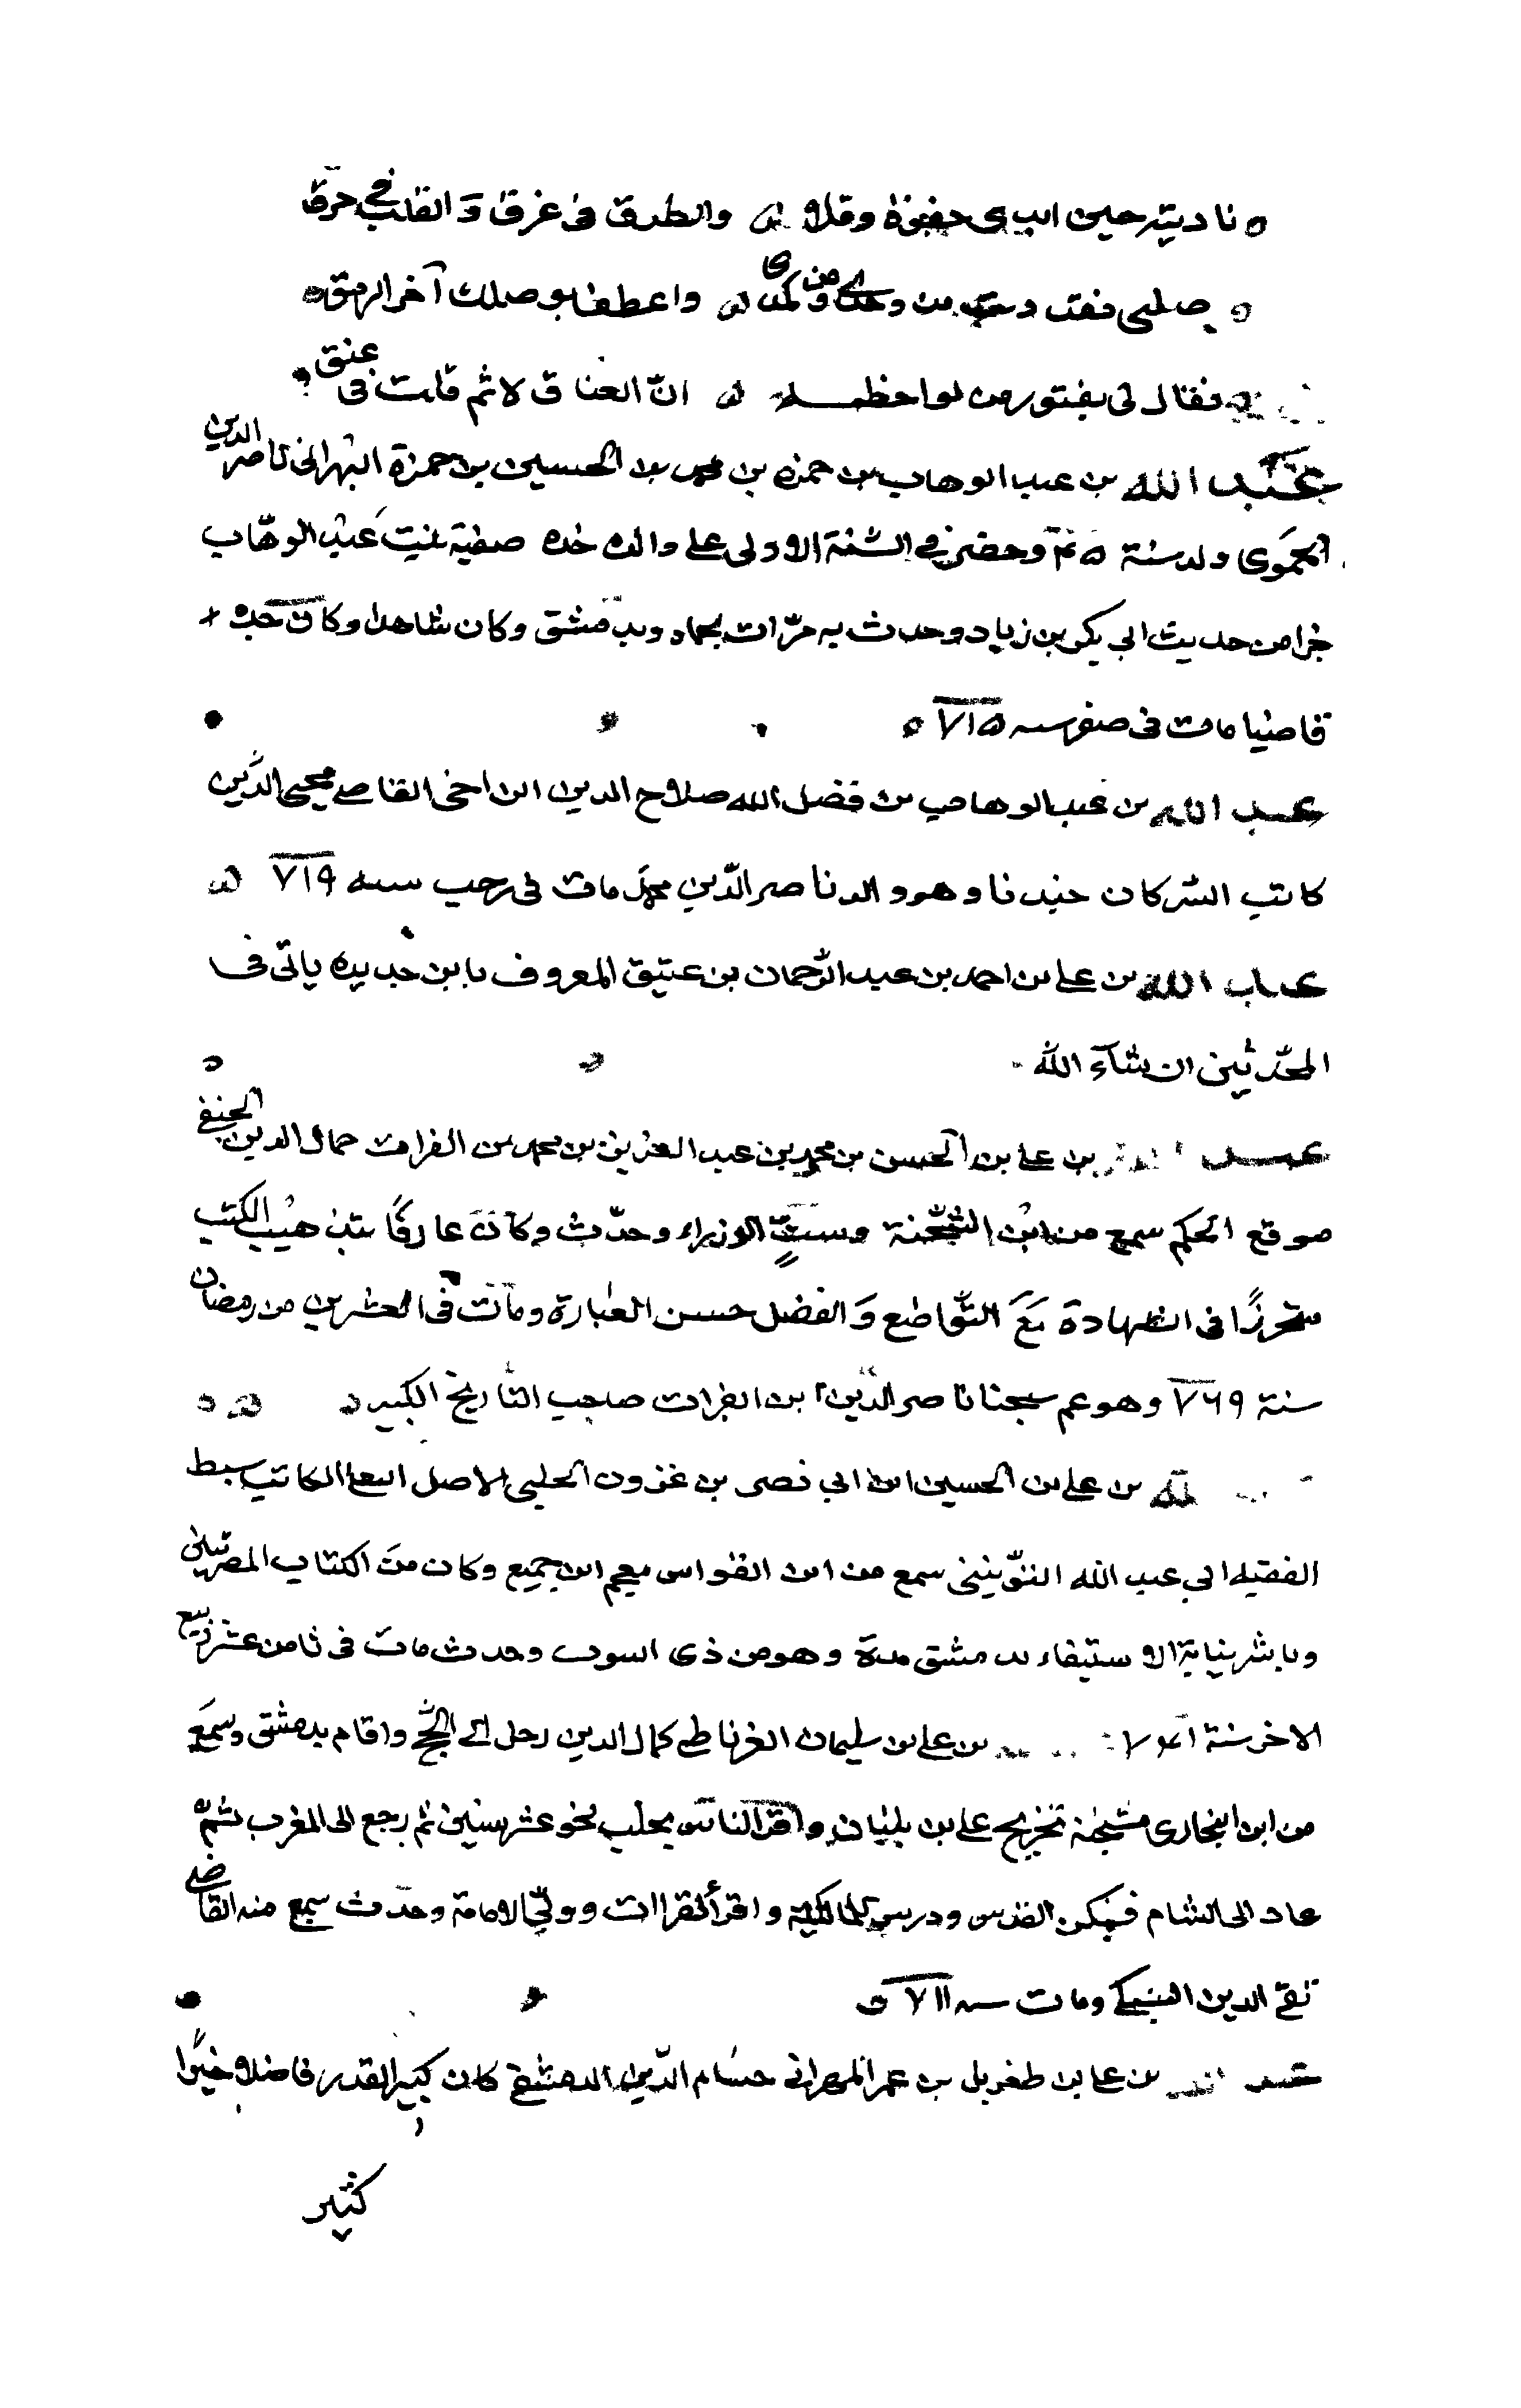 ناديته حين ابدى جفوة وقلا والطرف فى غرق وَالقلب فى حرق
صلنى فقد من وجدى ومن كمدى واعطف بوصلك آخر الرمق
فقال لى بفتور من لواحظه انّ العناق لاثم قلت فى عنق
عَبد الله بن عبد الوهاب بن حمزه بن محمد بن الحسين بن حمزة البهرانى ناصر الدين
الحموَى ولد سنة وحضر فى السّنة الاولى على والده صفية بنت عَبد الوهّاب
جزا من حديث ابي بكر بن زياد وحدث به مرّات بحماه وبدمشق وكان شاهدا وكان جده
قاضيا مات فى صفر سنه ٧١٥
عبد الله بن عبد الوهاب بن فضل الله صلاح الدين ابن اخى القاضي محيى الدّين
كاتب السّر كان جنديا وهو والد ناصر الدّين محمّد مات فى رجب سنه ٧١٩
عبد الله بن علي بن احمد بن عبد الرّحمان بن عتيق المعروف بابن حديده ياتى فى
المحدّثين ان شآء اللّٰه
عبد الله بن علي بن الحسن بن محمد بن عبد العزيز بن محمد بن الفرات جمال الدين الحنفي
موقع الحكم سمع من ابن الشّحنة وستّ الوزراء وحدّث وكان عارفًا بتذهيب الكتب
متحرزًا فى الشهادة مَعَ التّواضع وَالفضل حسن العبارة ومات فى العشرين من رمضان
سنة ٧٦٩ وهو عم شيخنا ناصر الدّين ابن الفرات صاحب التأريخ الكبير
الله بن علي بن الحسين ابن ابي نصر بن عزون الحلبى الاصل الكاتب سبط
الفقيه ابي عبد الله اليونينى سمع من ابن القواس معجم ابن جميع وكان من الكتاب
وباشر نيابة الاستيفاء بدمشق مدة وهو من ذى وحدث مات فى ثامن عشر ربيع
الاخر سنة بن علي بن سليمان الغرناطي كمال الدين رحل الى الحجّ واقام بدمشق وسمَع
من ابن البخارى مشيخة تخريج علي بن بلبان واقرأ الناس بحلب نحو عشر سنين ثم رجع الى المغرب ثمّ
عاد الى الشام فسكن القدس ودرس للمالكية واقرأ القراات وولّي الامامة وحدّث سمع منه القاضى
تقي الدين السبكي ومات سنه ٧١١
عبد الله بن علي بن طغريل بن عمر المهرانى حسام الدّين الدمشقي كان كبير القدر فاضلا خيّرا
كثير